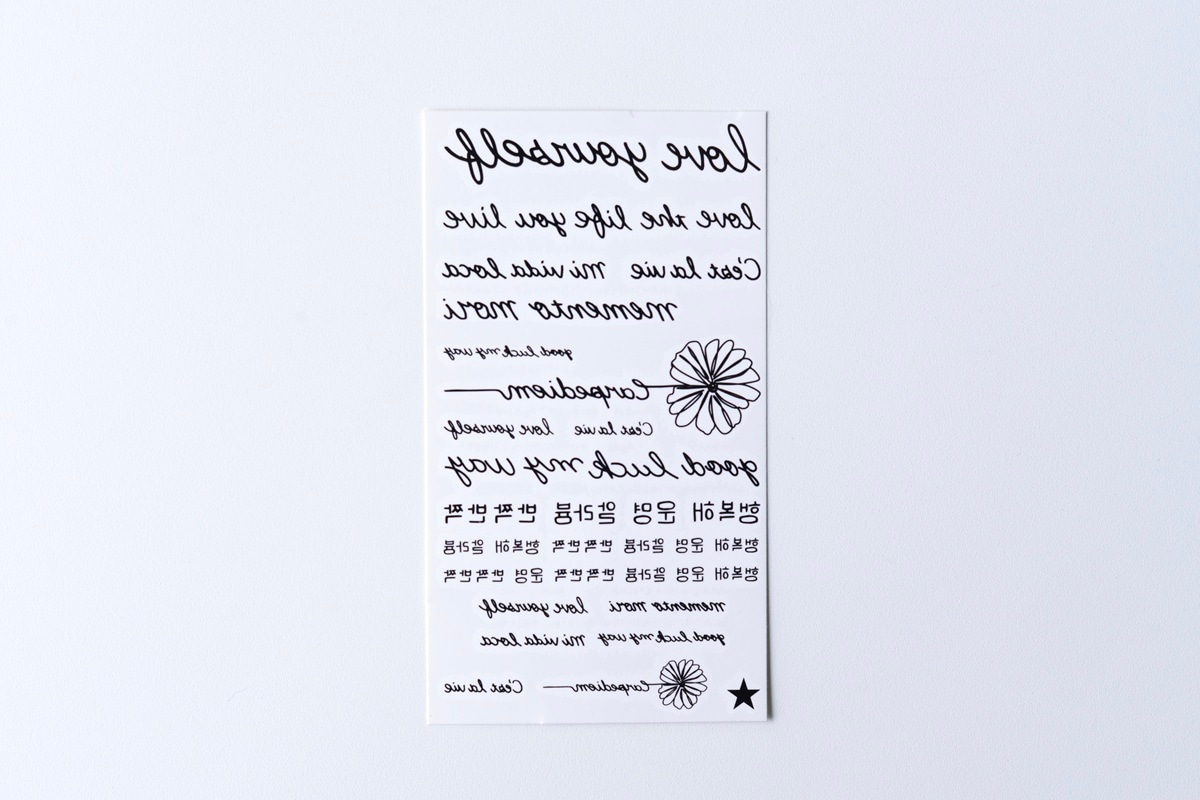 love yourself
love the life you live
C'est la vie mi vida loca
memento mori
good luck my way
Carpediem
C'est la vie love yourself
good luck my way
행복해 운명 알라븅 반짝반짝
행복해 운명 알라븅 반짝반짝 행복해 알라븅
행복해 운명 알라븅 반짝반짝 운명 반짝반짝
memento mori love yourself
good luck my way mi vida loca
Carpediem C'est la vie